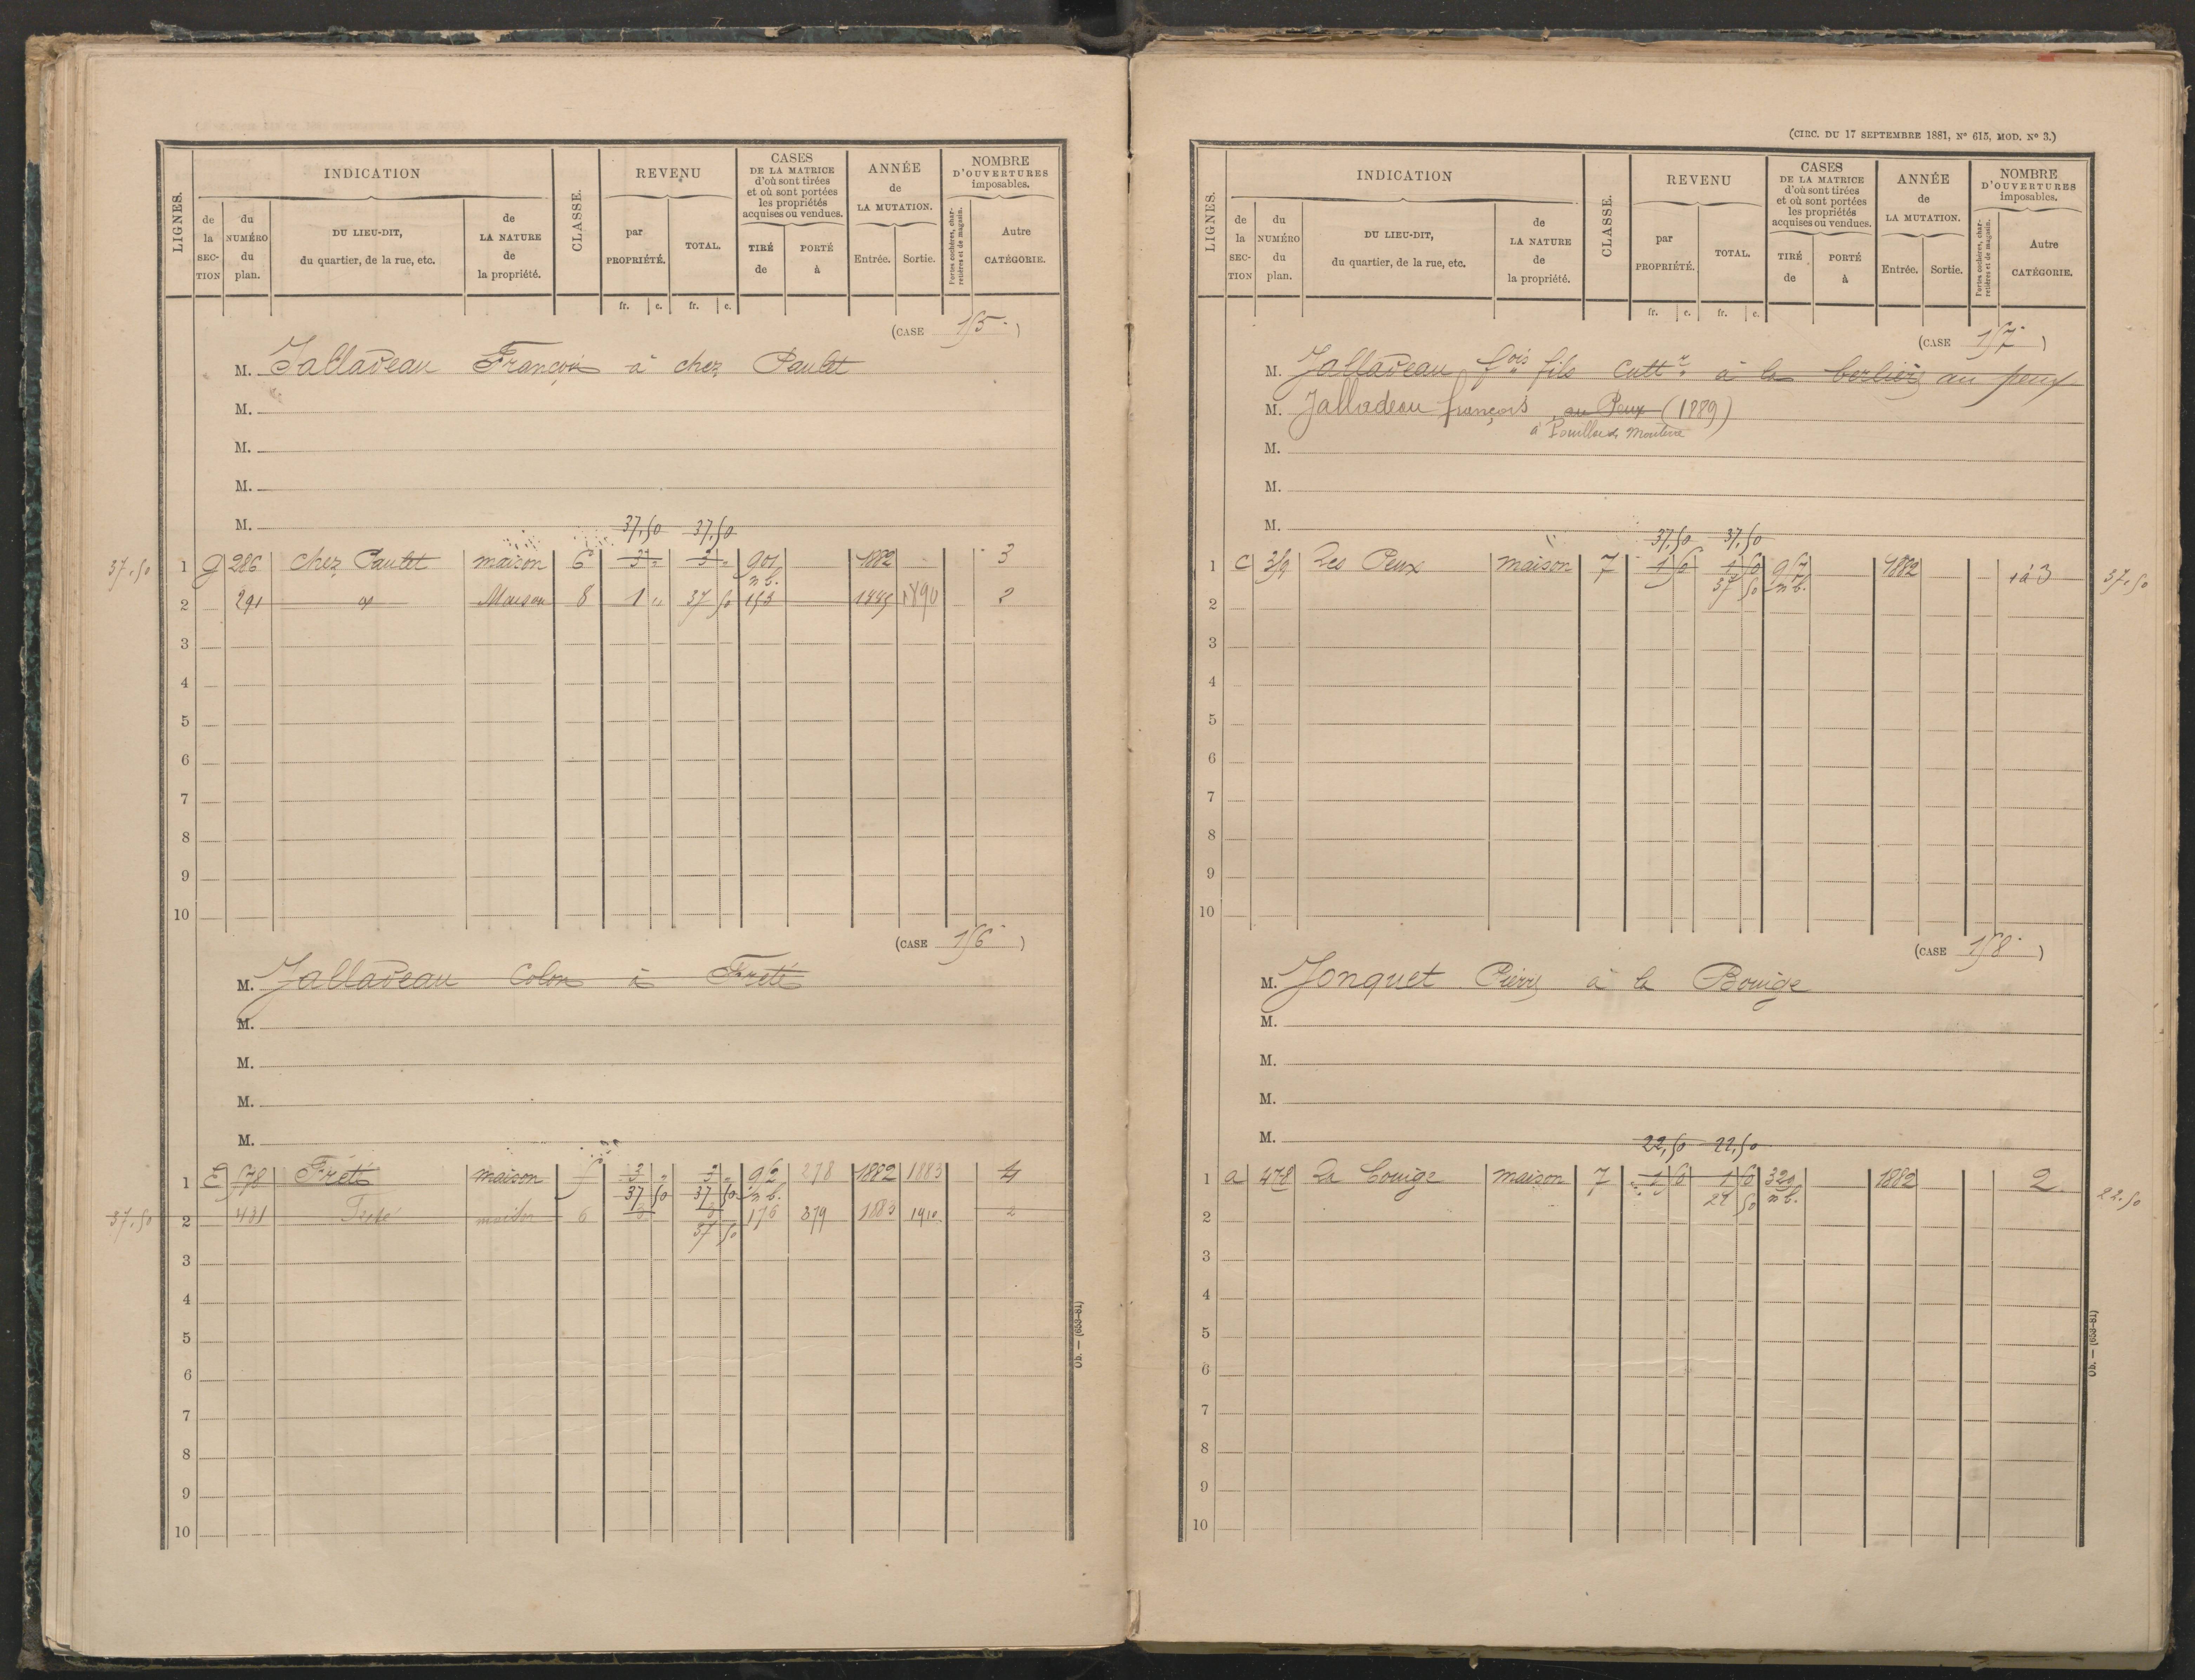 LIGNES.
INDICATION
de la SECTION
du NUMÉRO du plan.
DU LIEU-DIT, du quartier, de la rue, etc.
de LA NATURE de la propriété.
CLASSE.
REVENU
par PROPRIÉTÉ.
TOTAL.
CASES DE LA MATRICE d'où sont tirées et où sont portées les propriétés acquises ou vendues.
TIRÉ de
PORTÉ à
ANNÉE de LA MUTATION.
Entrée. Sortie.
NOMBRE D'OUVERTURES imposables.
Portes cochères, charretières et de magasin.
Autre CATÉGORIE.
fr. c. fr. c.
(CASE 155.)
M. Jalladeau François à chez Paulet
M.
M.
M.
M.
37,50 37,50
37.50 1 g 286 chez Paulet maison 6 3 " 3 " 901 1882 3
n b.
2 291 Maison 8 1 " 37 50 153 1885 1890 2
3
4
5
6
7
8
9
10
(CASE 156.)
M. Jalladeau Colon à Freté
M.
M.
M.
M.
1 E 578 Freté maison 5 3 " 3 " 962 278 1882 1883 4
37 50 37 50 n b.
37.50 2 431 Freté maison 6 3 3 176 379 1883 1910 2
37 50
3
4
5
6
7
8
9
10
Ob. — (653-81)
(CIRC. DU 17 SEPTEMBRE 1881, Nº 615, MOD. Nº 3.)
LIGNES.
INDICATION
de la SECTION
du NUMÉRO du plan.
DU LIEU-DIT, du quartier, de la rue, etc.
de LA NATURE de la propriété.
CLASSE.
REVENU
par PROPRIÉTÉ.
TOTAL.
CASES DE LA MATRICE d'où sont tirées et où sont portées les propriétés acquises ou vendues.
TIRÉ de
PORTÉ à
ANNÉE de LA MUTATION.
Entrée. Sortie.
NOMBRE D'OUVERTURES imposables.
Portes cochères, charretières et de magasin.
Autre CATÉGORIE.
fr. c. fr. c.
(CASE 157.)
M. Jalladeau fois fils cultr à la au peux
M. Jalladeau françois au Peux (1889)
M.
M.
M.
37,50 37,50
1 C 359 Les Peux maison 7 1 50 1 50 957 1882 3 37.50
37 50 n b.
2
3
4
5
6
7
8
9
10
(CASE 158.)
M. Jonquet Pierre à la Bouige
M.
M.
M.
M.
22,50 22,50
1 a 478 La bouige maison 7 1 50 1 50 329 1882 2 22.50
22 50 n b.
2
3
4
5
6
7
8
9
10
Ob. — (653-81)